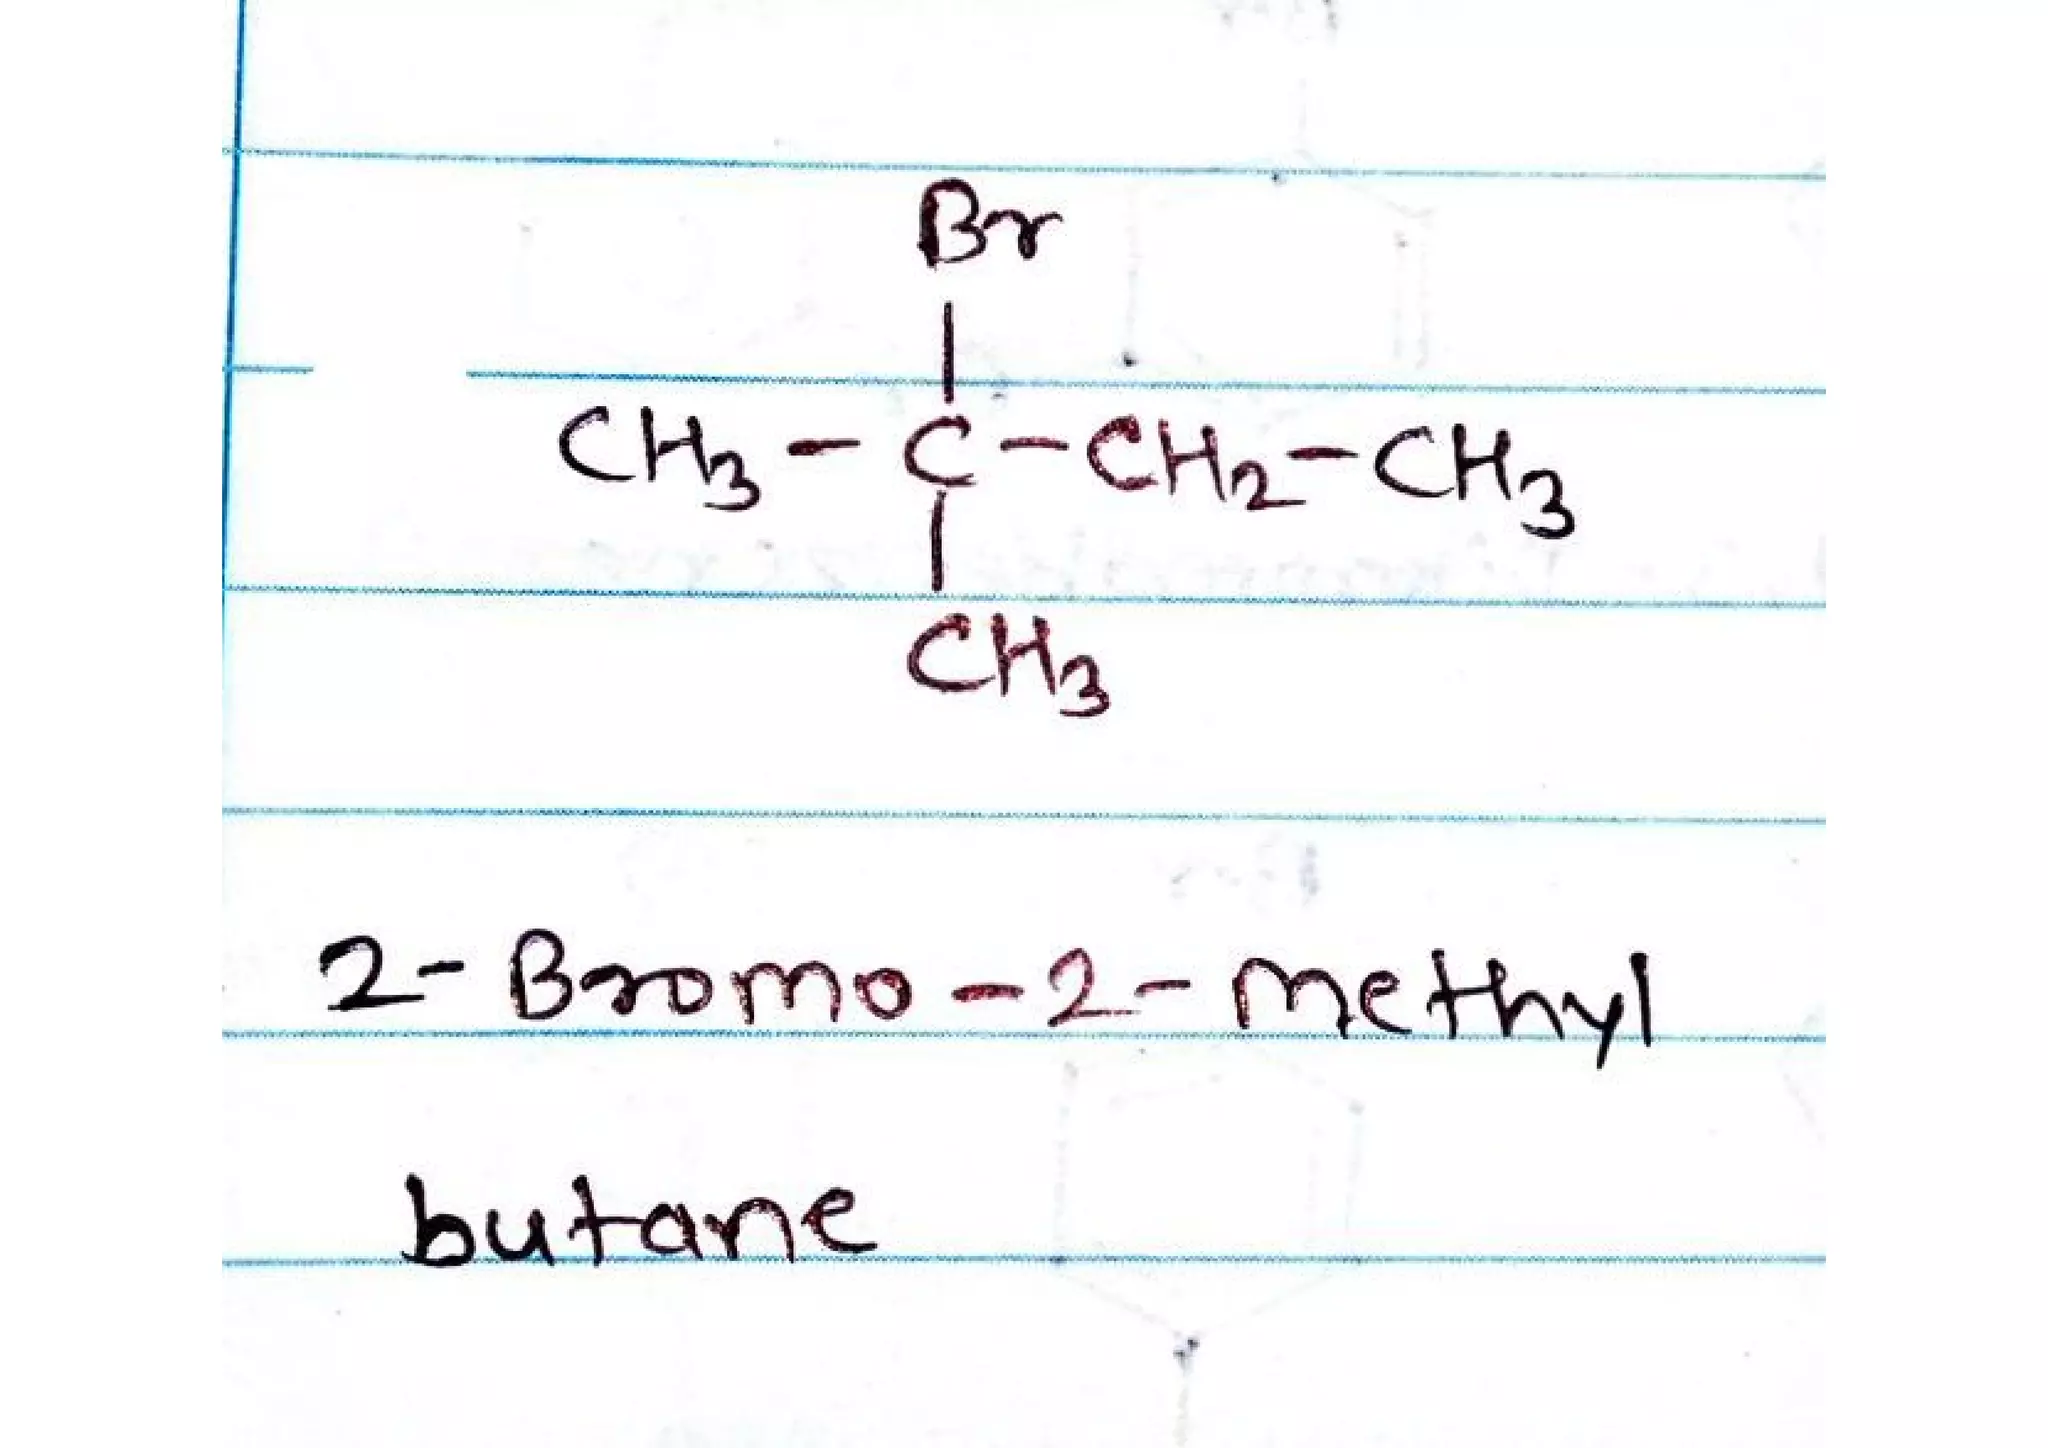 Br
CH3 - C - CH2 - CH3
CH3
2- Bromo - 2 - Methyl
butane